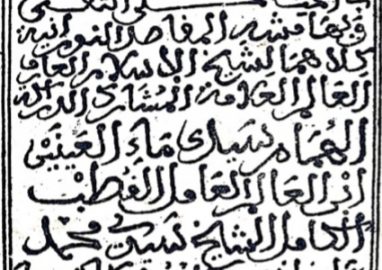 وبهامشه المفاصد النورانية
كلاهما لشيخ الاسلام العام
العالم العلامة المشارك الدراكة
الهمام سيدي ماء العينين
ابن العالم العامل القطب
الكامل الشيخ سيدي محمد